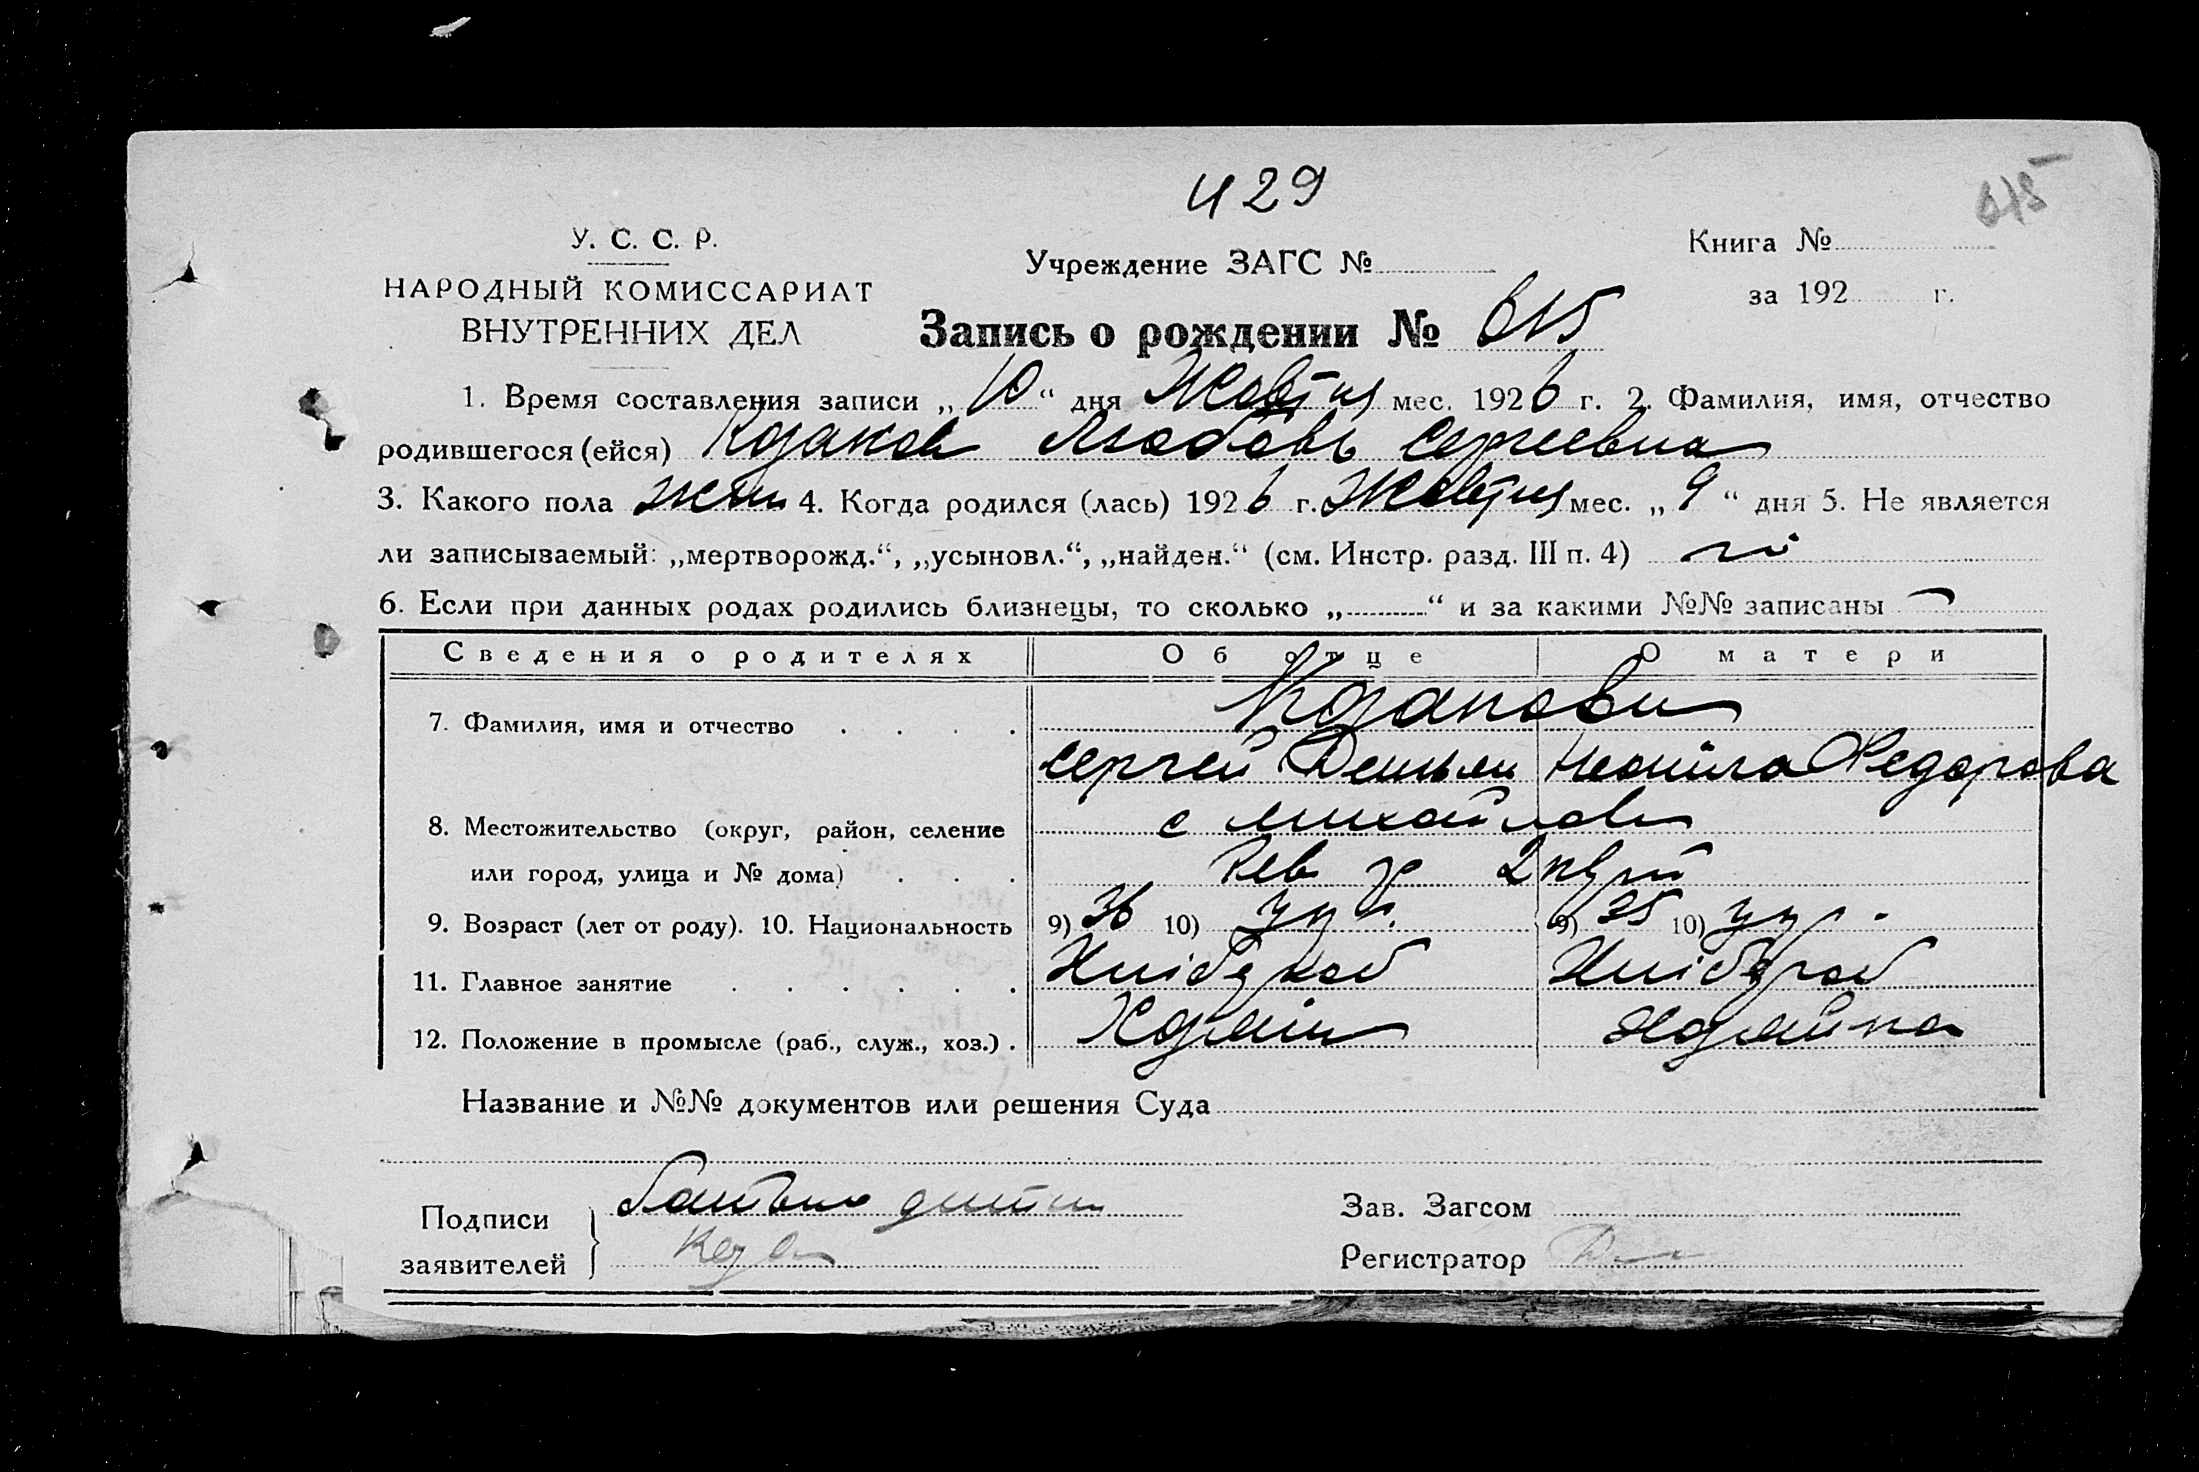 429
615
У. С. С. Р.
НАРОДНЫЙ КОМИССАРИАТ
ВНУТРЕННИХ ДЕЛ
Учреждение ЗАГС №
Книга №
за 192 г.
Запись о рождении № 615
1. Время составления записи „10“ дня Жовтня мес. 1926 г. 2. Фамилия, имя, отчество
родившегося (ейся) Любовь Сергеевна
3. Какого пола жен 4. Когда родился (лась) 1926 г. Жовтня мес. „9“ дня 5. Не является
ли записываемый: „мертворожд.“, „усыновл.“, „найден.“ (см. Инстр. разд. III п. 4) ні
6. Если при данных родах родились близнецы, то сколько „ “ и за какими №№ записаны
Сведения о родителях Об отце О матери
7. Фамилия, имя и отчество
Сергей Федорова
8. Местожительство (округ, район, селение с
или город, улица и № дома)
9. Возраст (лет от роду). 10. Национальность 9) 36 10) укр. 9) 35 10) укр.
11. Главное занятие Хлібороб Хлібороб
12. Положение в промысле (раб., служ., хоз.) Хозяін Хозяйка
Название и №№ документов или решения Суда
Подписи
заявителей
Батько дитини
Зав. Загсом
Регистратор